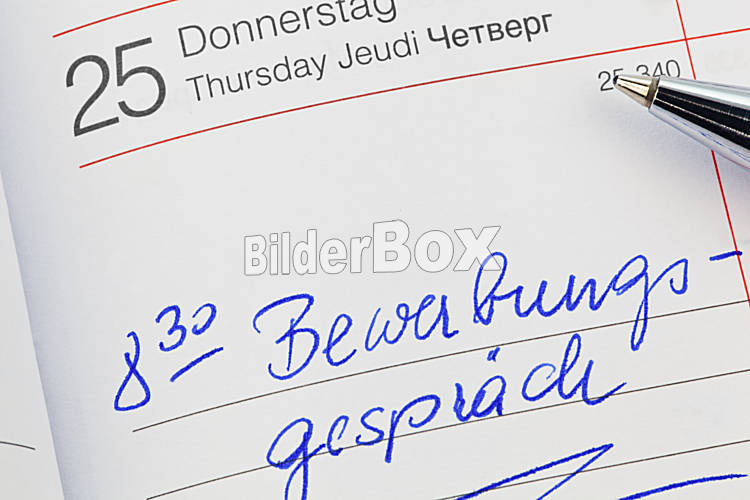 Donnerstag
25 Thursday Jeudi Четверг
25-340
BilderBox
8 30 Bewerbungs-
gespräch